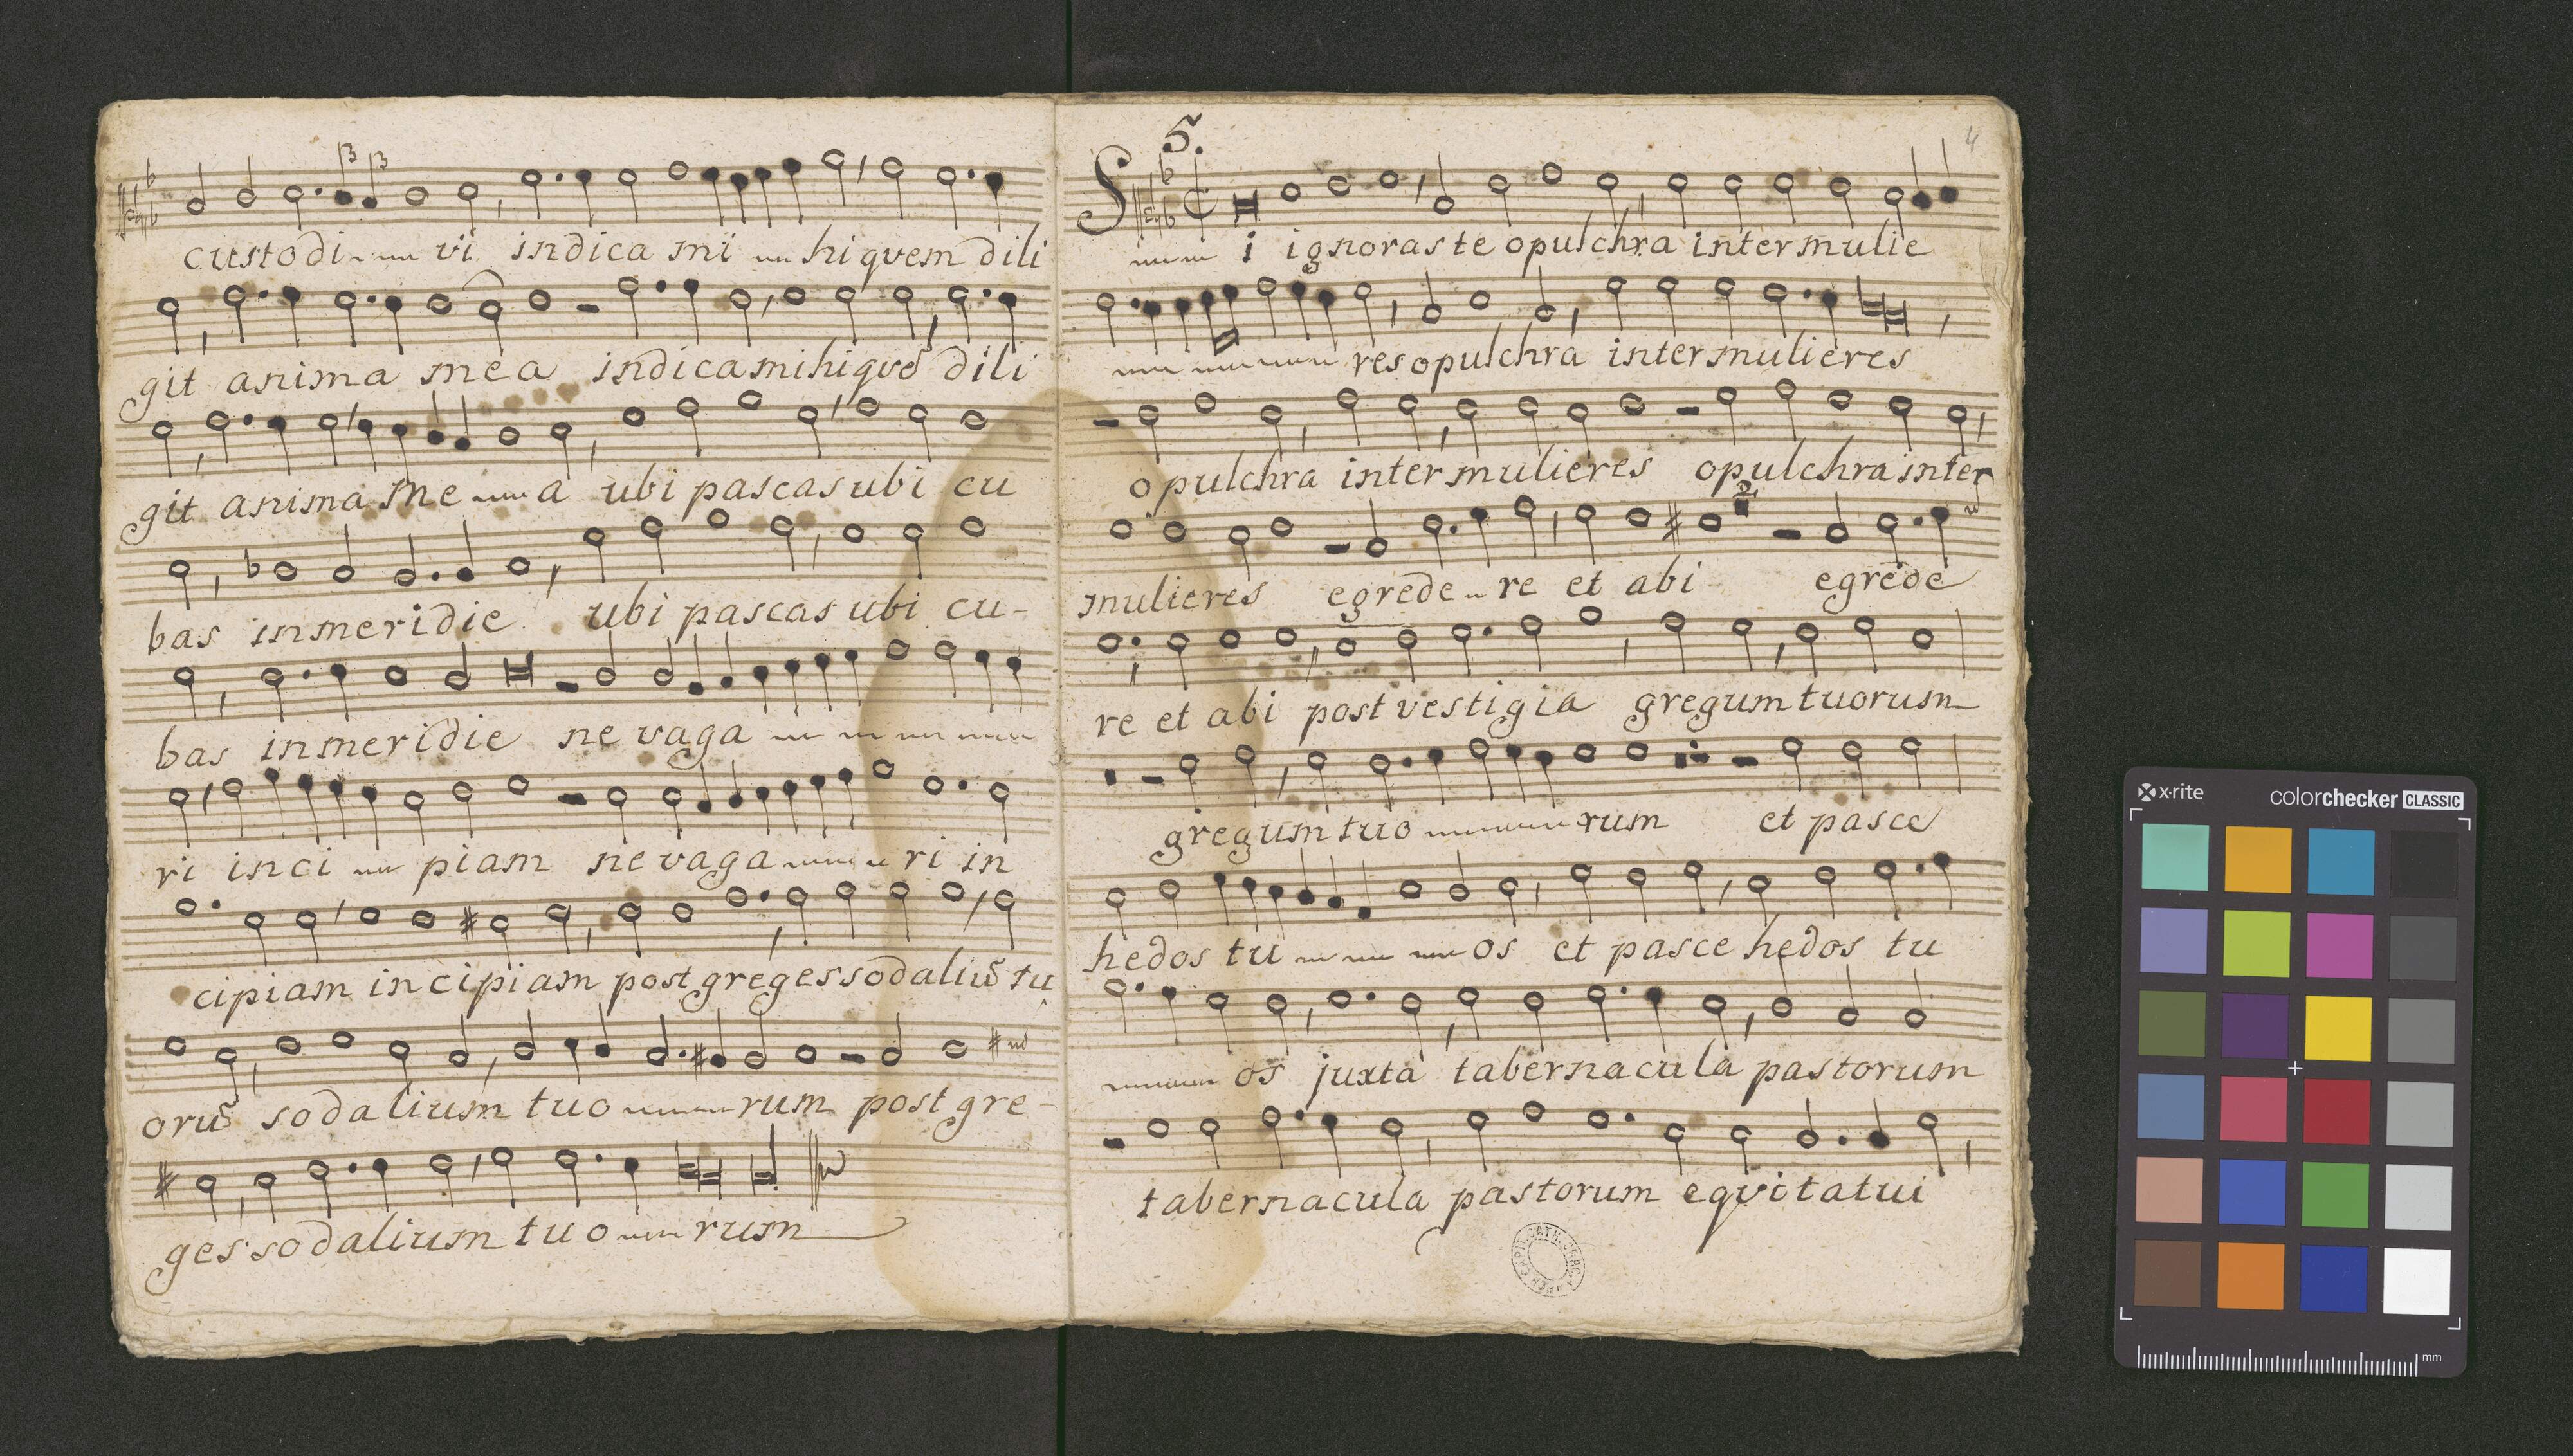 custodi vi indica mi hi quem dili
git anima mea indica mihi quē dili
git anima me a ubi pascas ubi cu
bas in meridie ubi pascas ubi cu-
bas in meridie ne vaga
ri inci piam ne vaga ri in
cipiam incipiam post greges sodaliū tu
orū sodalium tuo rum post gre-
ges sodalium tuo rum
5.
4
Si ignoras te o pulchra inter mulie
res o pulchra inter mulieres
o pulchra inter mulieres o pulchra inter
2
mulieres egrede re et abi egrede
re et abi post vestigia gregum tuorum
gregum tuo rum et pasce
hedos tu os et pasce hedos tu
os juxta tabernacula pastorum
tabernacula pastorum eqvitatui
x-rite
colorchecker CLASSIC
mm